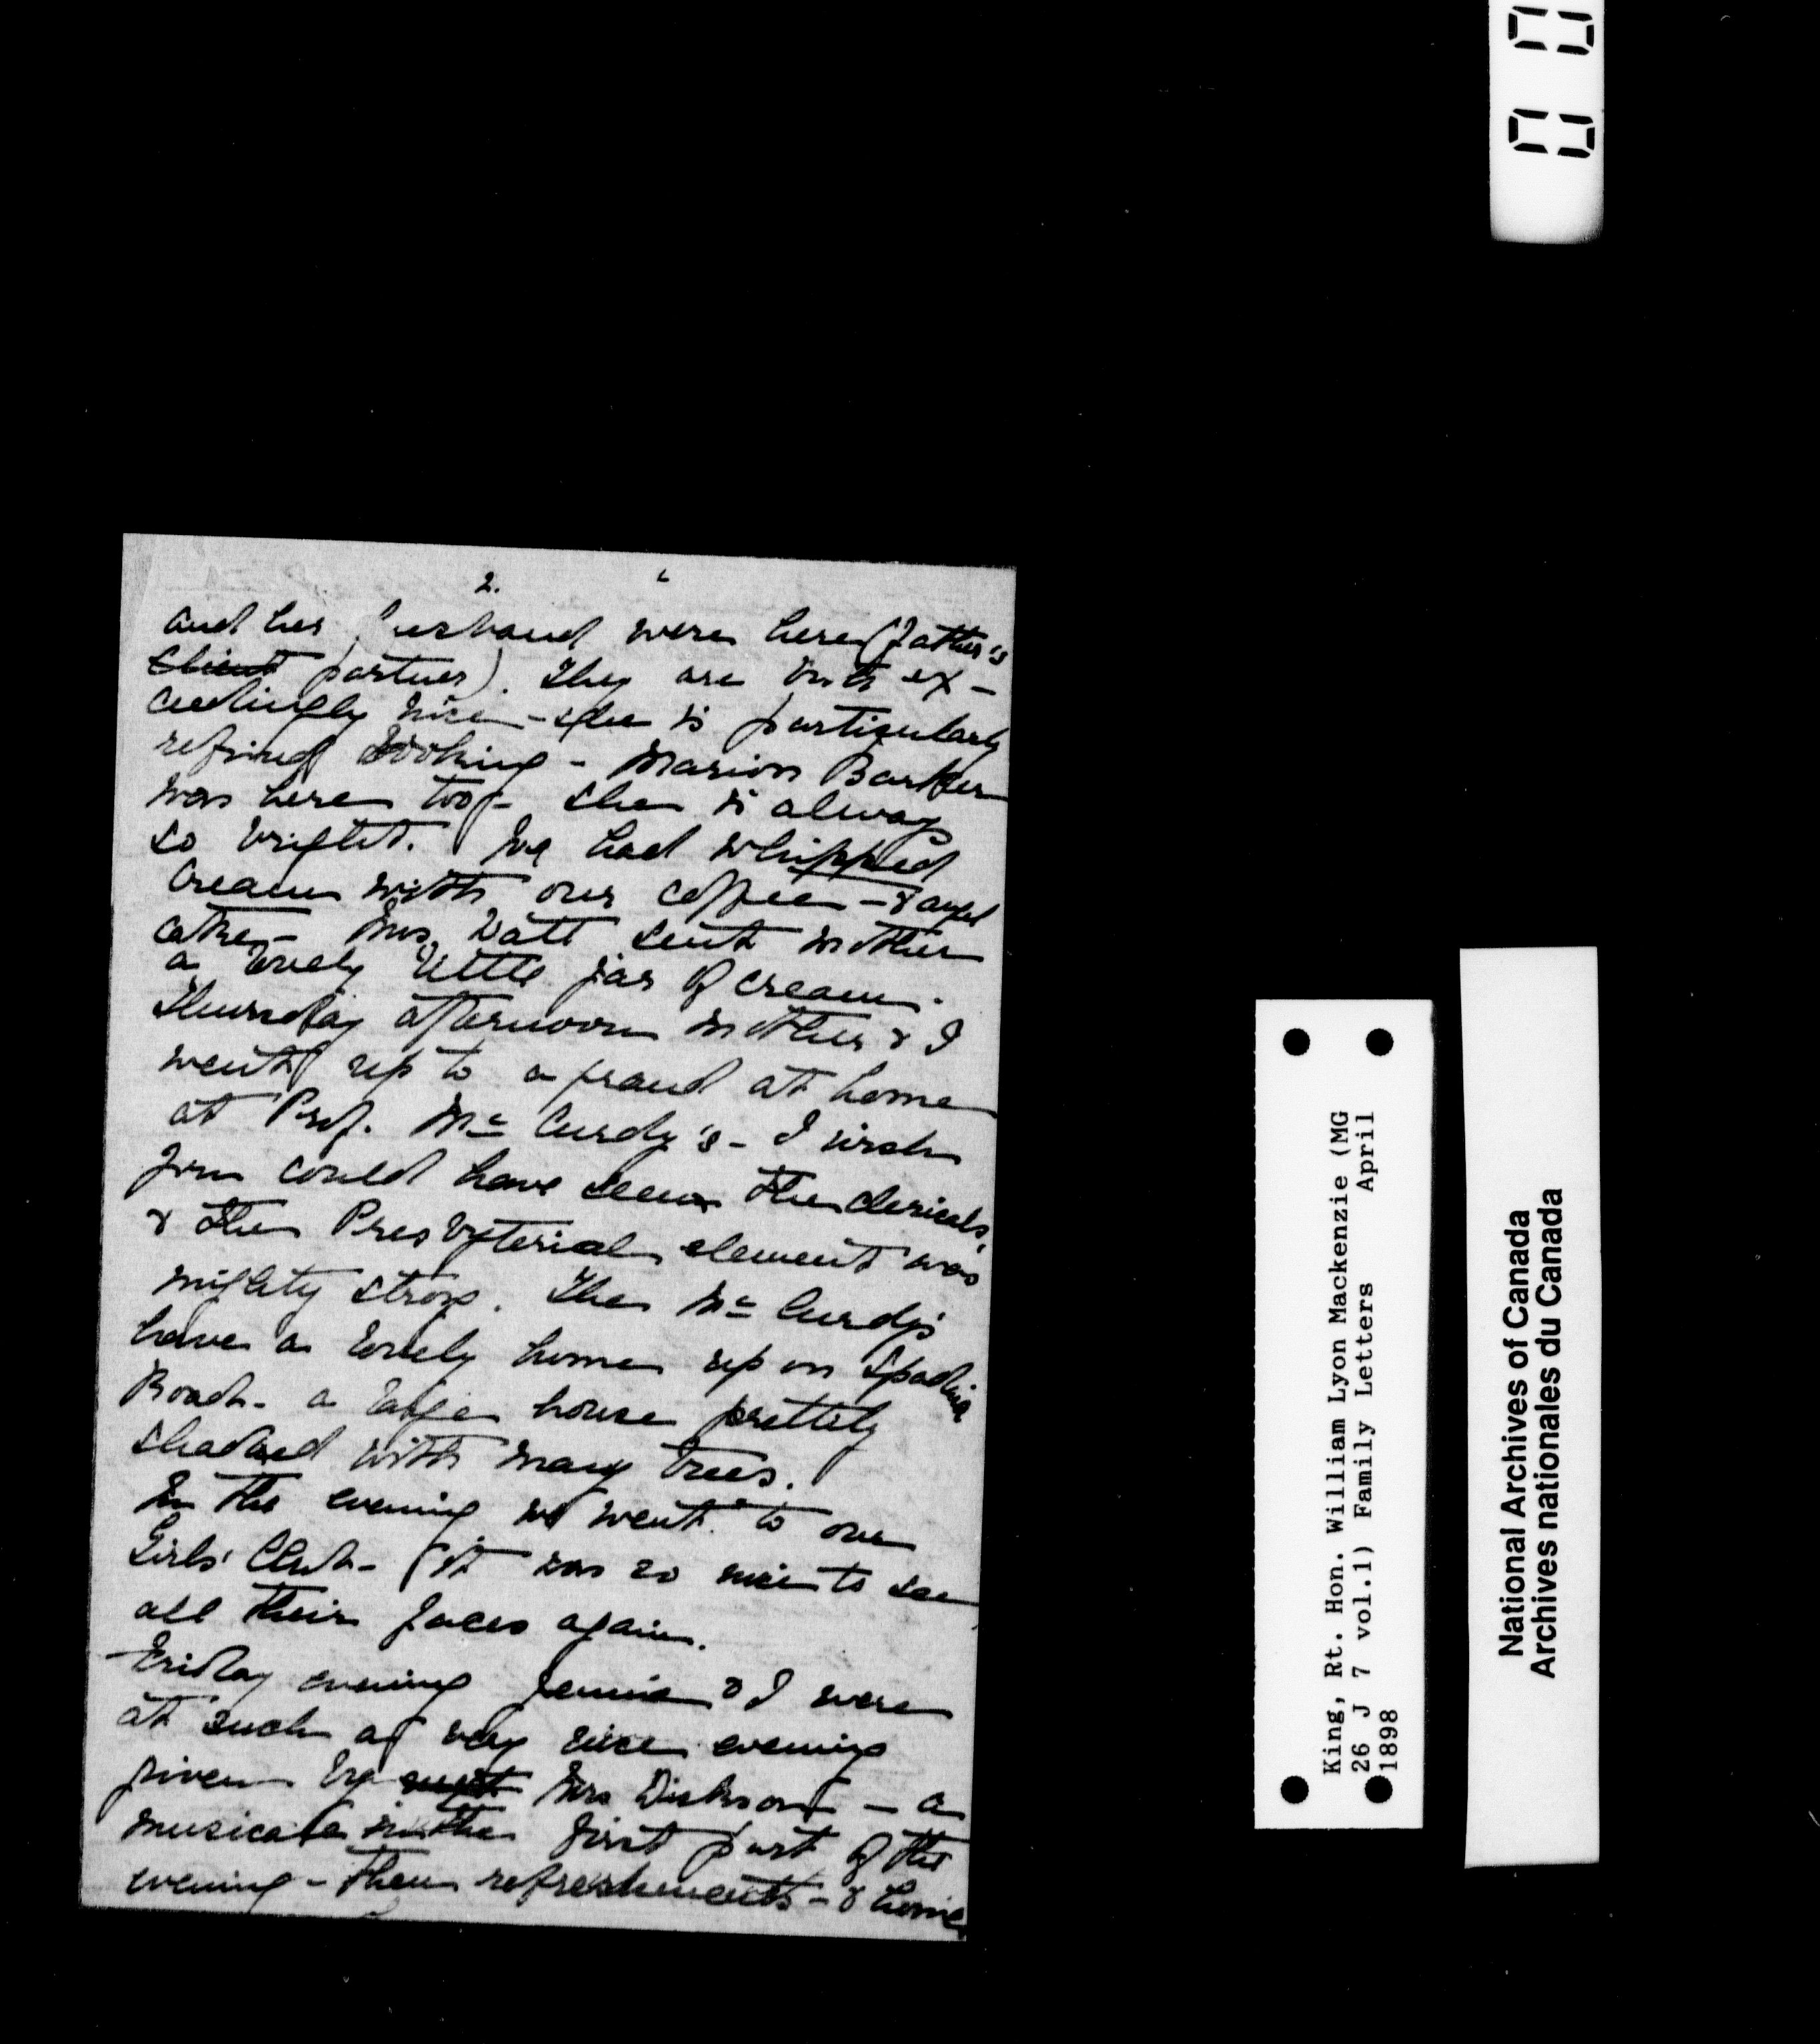 2.
and her husband were here (Father's
client partner). They are both ex-
ceedingly nice - she is particularly
refined looking - Marion Barker
was here too - she is always
so bright. We had whipped
cream with our coffee - & angel
cake - Mrs. Watt sent mother
a lovely little jar of cream.
Thursday afternoon mother & I
went up to a grand at home
at Prof. Mc Curdy's - I wish
you could have seen the clericals,
& the Presbyterial element was
mighty strong. The Mc Curdys
have a lovely home up on Spadina
Road - a large house prettily
shaded with many trees.
In the evening we went to our
Girls' Club - it was so nice to see
all their faces again.
Friday evening Jennie & I were
at such a very nice evening
given by Mrs Dickson - a
musicale in the first part of the
evening - then refreshments - & home
King, Rt. Hon. William Lyon Mackenzie (MG
26 J 7 vol.1) Family Letters April
1898
National Archives of Canada
Archives nationales du Canada